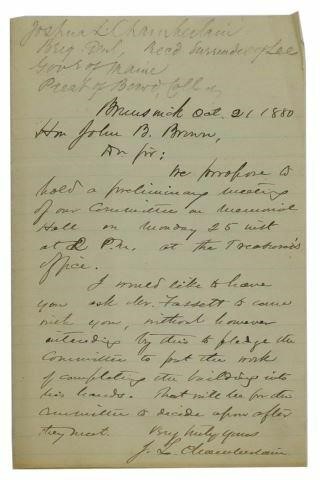 Joshua L Chamberlain
Brig Genl, Recd Surrender of Lee
Govr of Maine
Prest of Bowd. Coll
Brunswick Oct. 21 1880
Hon John B. Brown,
Dr Sir;
We propose to
hold a preliminary meeting
of our Committee on Memorial
Hall on Monday 25 inst
at 2 P.M. at the Treasurer's
office.
I would like to have
you ask Mr. Fassett to come
with you, without however
intending by this to pledge the
Committee to put the work
of completing the building into
his hands. That will be for the
committee to decide upon after
they meet.
Very truly yours
J. L. Chamberlain